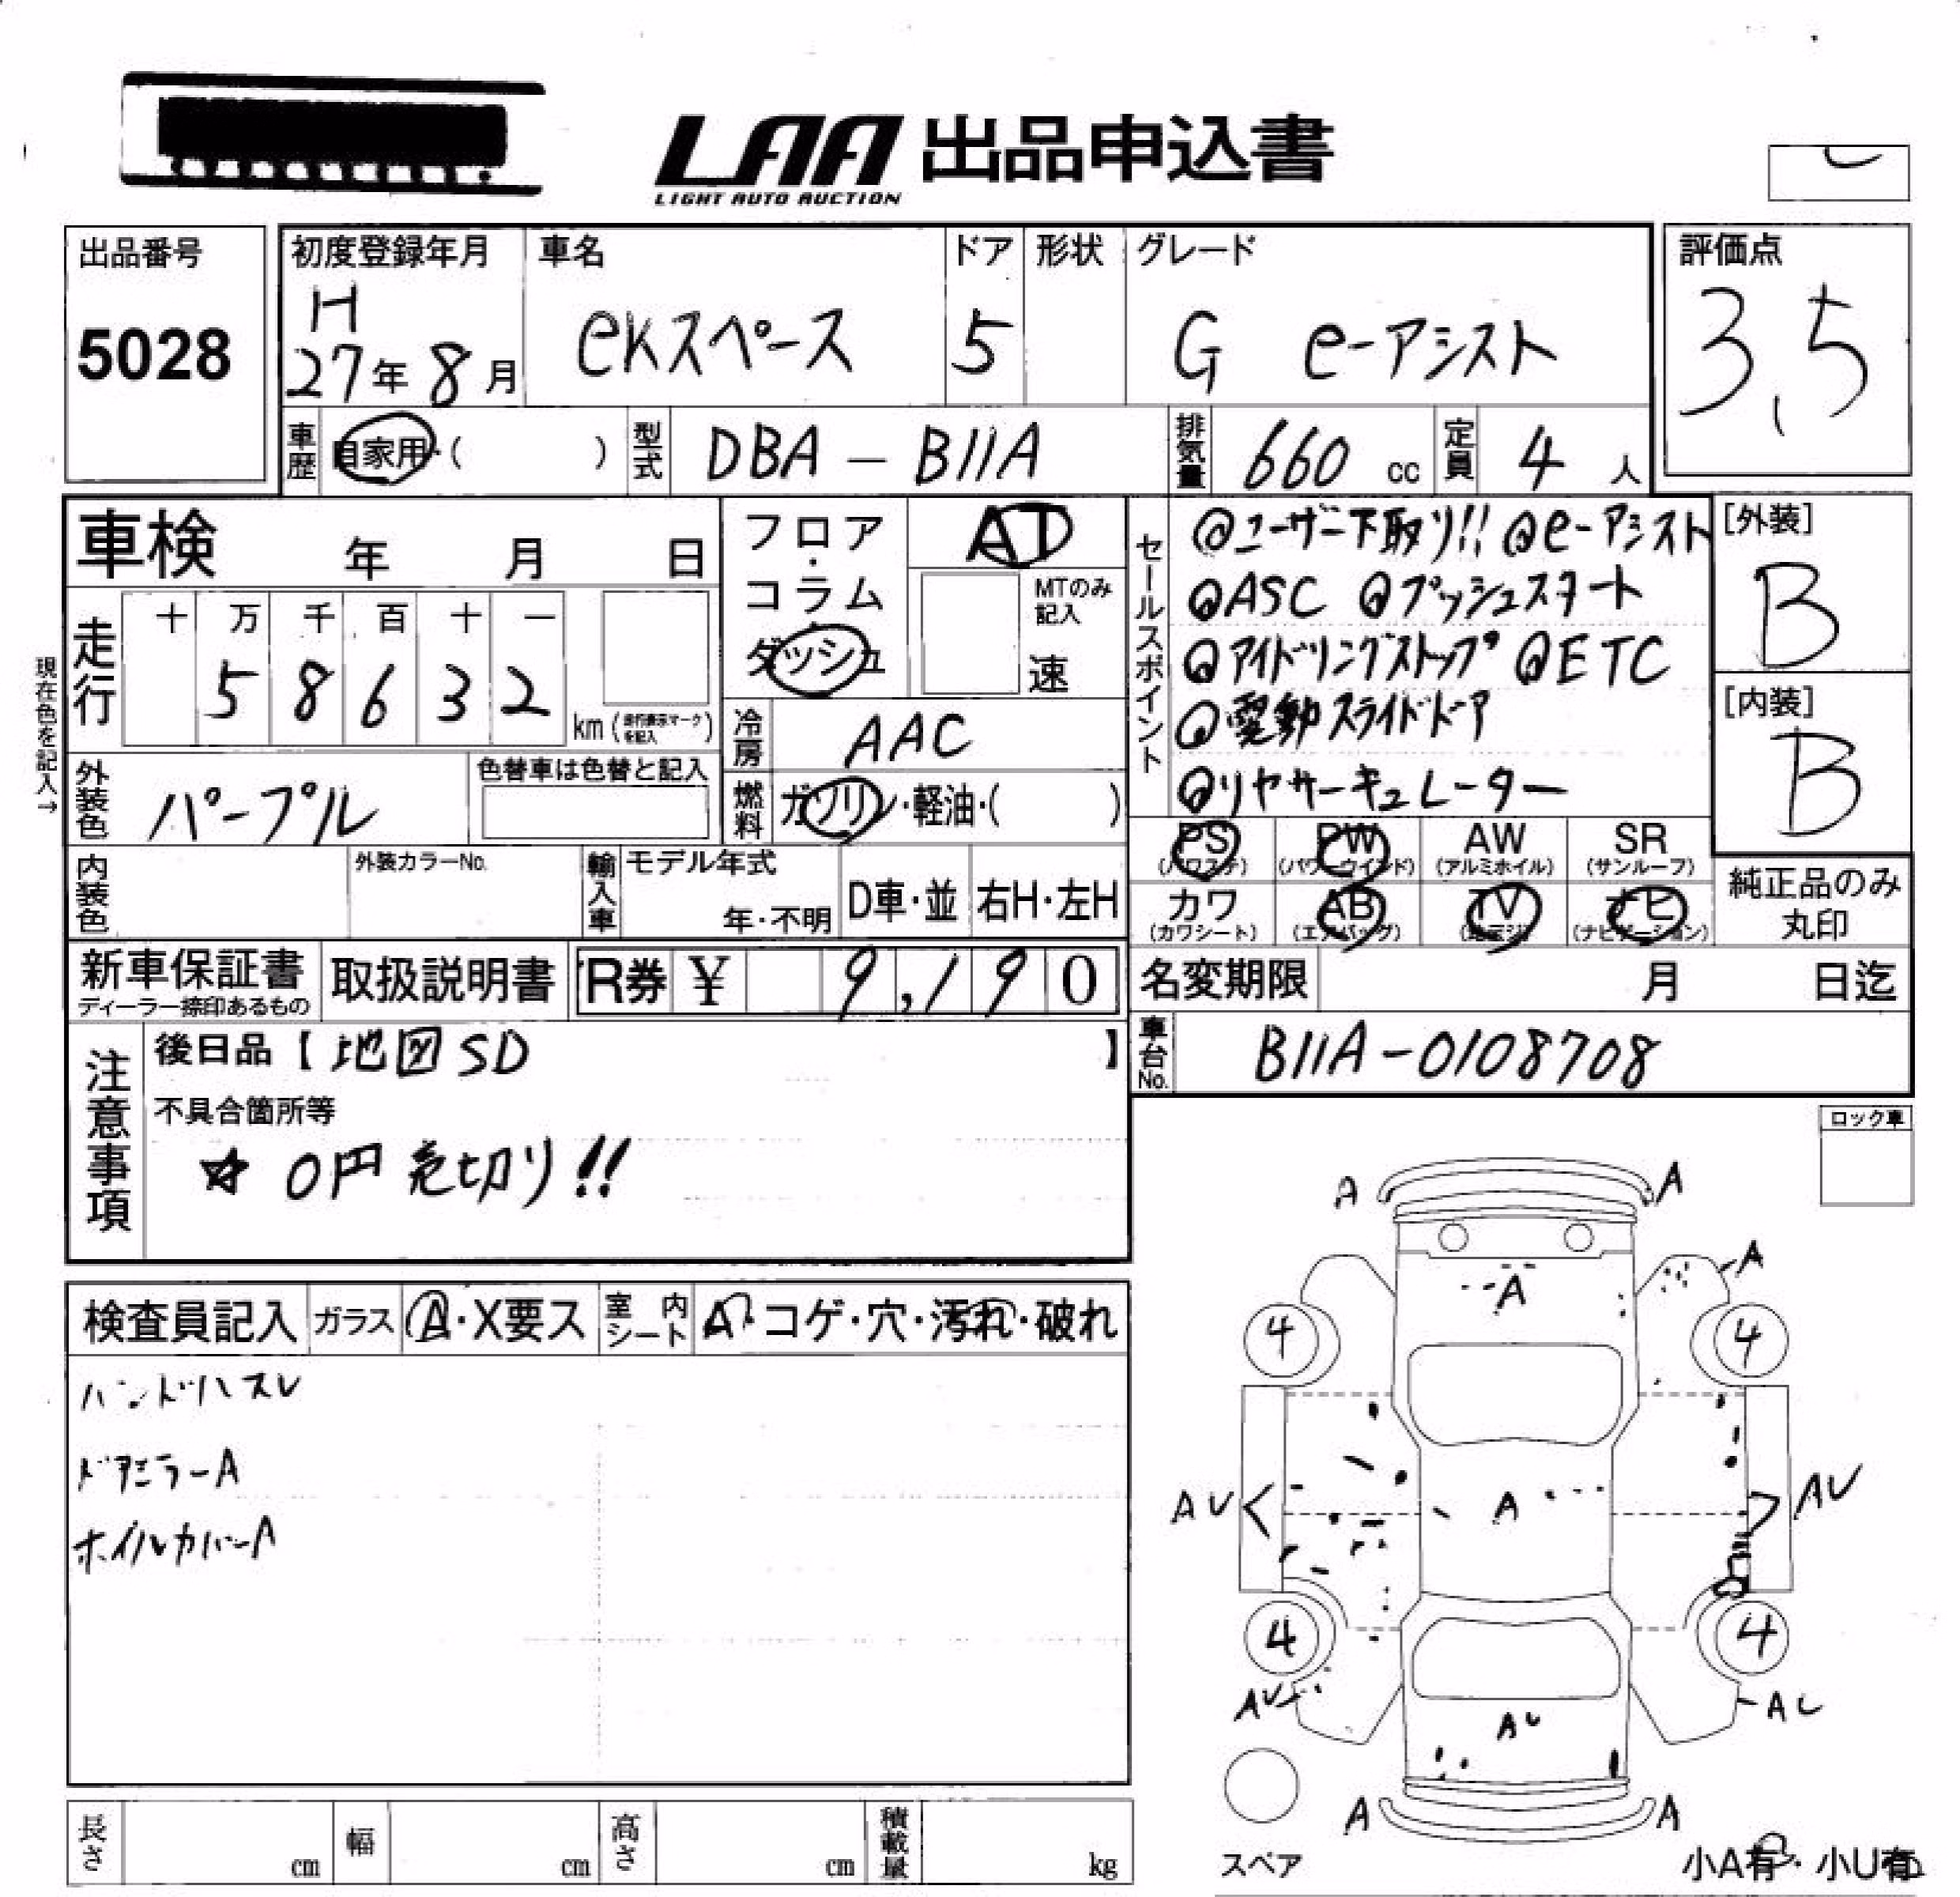 LAA 出品申込書
LIGHT AUTO AUCTION
出品番号
5028
初度登録年月
H
27年 8月
車名
ekスペース
ドア
5
形状
グレード
G e-アシスト
評価点
3.5
車歴
自家用・( )
型式
DBA-B11A
排気量
660 cc
定員
4 人
車検 年 月 日
走行
十 万 千 百 十 一
5 8 6 3 2
km(走行表示マークを記入)
現在色を記入→
フロア・コラム・ダッシュ
AT
MTのみ記入
速
冷房
AAC
燃料
ガソリン・軽油・( )
セールスポイント
@ユーザー下取り!! @e-アシスト
@ASC @プッシュスタート
@アイドリングストップ @ETC
@電動スライドドア
@リヤサーキュレーター
[外装]
B
[内装]
B
外装色
パープル
色替車は色替と記入
内装色
外装カラーNo.
輸入車
モデル年式
年・不明
D車・並
右H・左H
PS
(パワステ)
PW
(パワーウインド)
AW
(アルミホイル)
SR
(サンルーフ)
カワ
(カワシート)
AB
(エアバッグ)
TV
(地デジ)
ナビ
(ナビゲーション)
純正品のみ
丸印
新車保証書
ディーラー捺印あるもの
取扱説明書
R券 ¥ 9,190
名変期限 月 日迄
車台No.
B11A-0108708
注意事項
後日品【地図SD 】
不具合箇所等
☆ 0円売切り!!
ロック車
検査員記入
ガラス
A・X要ス
室内シート
A・コゲ・穴・汚れ・破れ
ハンドルスレ
ドアミラーA
ホイルカバーA
A A
A
A
4 4
AU A AU
4 4
AU AU
AU
A A
スペア
小A有・小U有
長さ cm
幅 cm
高さ cm
積載量 kg